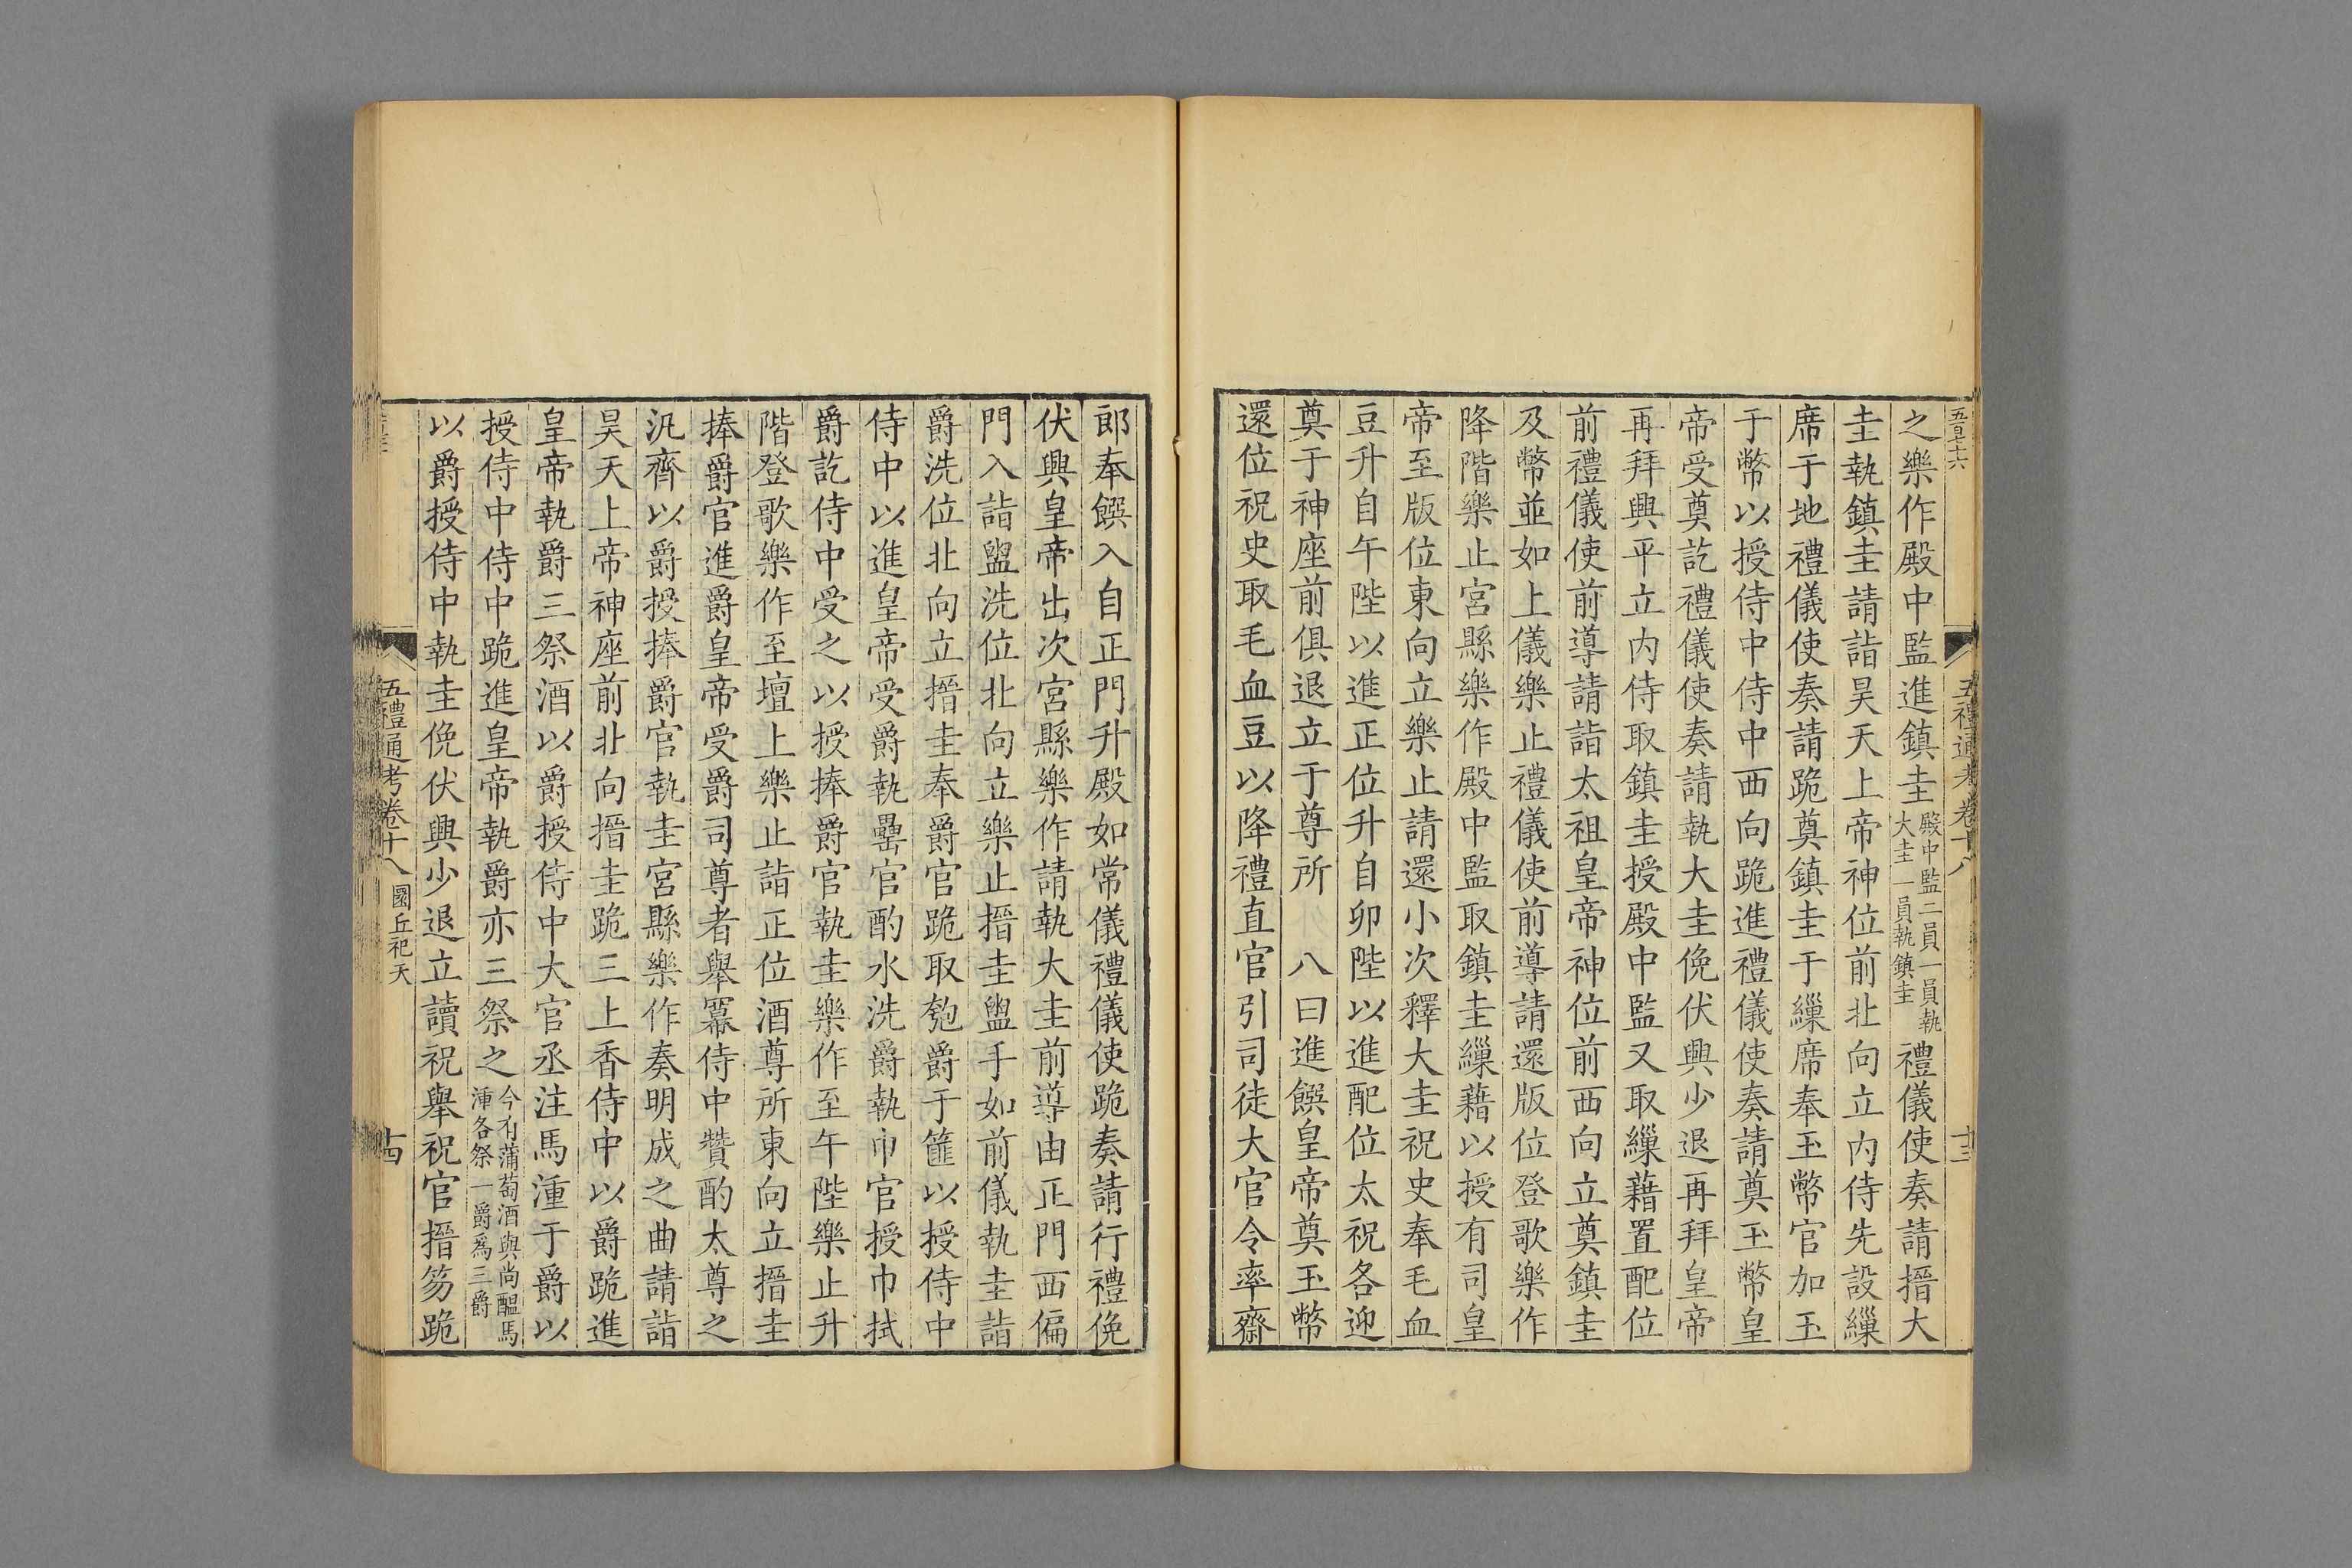 五百七十六
五禮通考卷十八
十三
之樂作殿中監進鎮圭殿中監二員一員執大圭一員執鎮圭禮儀使奏請搢大
圭執鎮圭請詣昊天上帝神位前北向立內侍先設繅
席于地禮儀使奏請跪奠鎮圭于繅席奉玉幣官加玉
于幣以授侍中侍中西向跪進禮儀使奏請奠玉幣皇
帝受奠訖禮儀使奏請執大圭俛伏興少退再拜皇帝
再拜興平立內侍取鎮圭授殿中監又取繅藉置配位
前禮儀使前導請詣太祖皇帝神位前西向立奠鎮圭
及幣並如上儀樂止禮儀使前導請還版位登歌樂作
降階樂止宮縣樂作殿中監取鎮圭繅藉以授有司皇
帝至版位東向立樂止請還小次釋大圭祝史奉毛血
豆升自午陛以進正位升自卯陛以進配位太祝各迎
奠于神座前俱退立于尊所　八曰進饌皇帝奠玉幣
還位祝史取毛血豆以降禮直官引司徒大官令率齋
郎奉饌入自正門升殿如常儀禮儀使跪奏請行禮俛
伏興皇帝出次宮縣樂作請執大圭前導由正門西偏
門入詣盥洗位北向立樂止搢圭盥手如前儀執圭詣
爵洗位北向立搢圭奉爵官跪取匏爵于篚以授侍中
侍中以進皇帝受爵執罍官酌水洗爵執巾官授巾拭
爵訖侍中受之以授捧爵官執圭樂作至午陛樂止升
階登歌樂作至壇上樂止詣正位酒尊所東向立搢圭
捧爵官進爵皇帝受爵司尊者舉冪侍中贊酌太尊之
汎齊以爵授捧爵官執圭宮縣樂作奏明成之曲請詣
昊天上帝神座前北向搢圭跪三上香侍中以爵跪進
皇帝執爵三祭酒以爵授侍中大官丞注馬湩于爵以
授侍中侍中跪進皇帝執爵亦三祭之今有蒲萄酒與尚醞馬湩各祭一爵爲三爵
以爵授侍中執圭俛伏興少退立讀祝舉祝官搢笏跪
五禮通考卷十八 圜丘祀天
十四